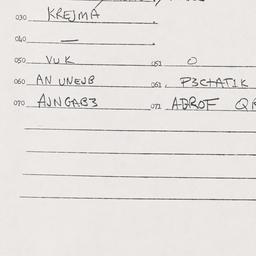 030 KREJMA
040 —
050 VUK 051 0
060 AN UNEJB 061 P3CTAT1K
070 AJNGAB3 071 ADROF